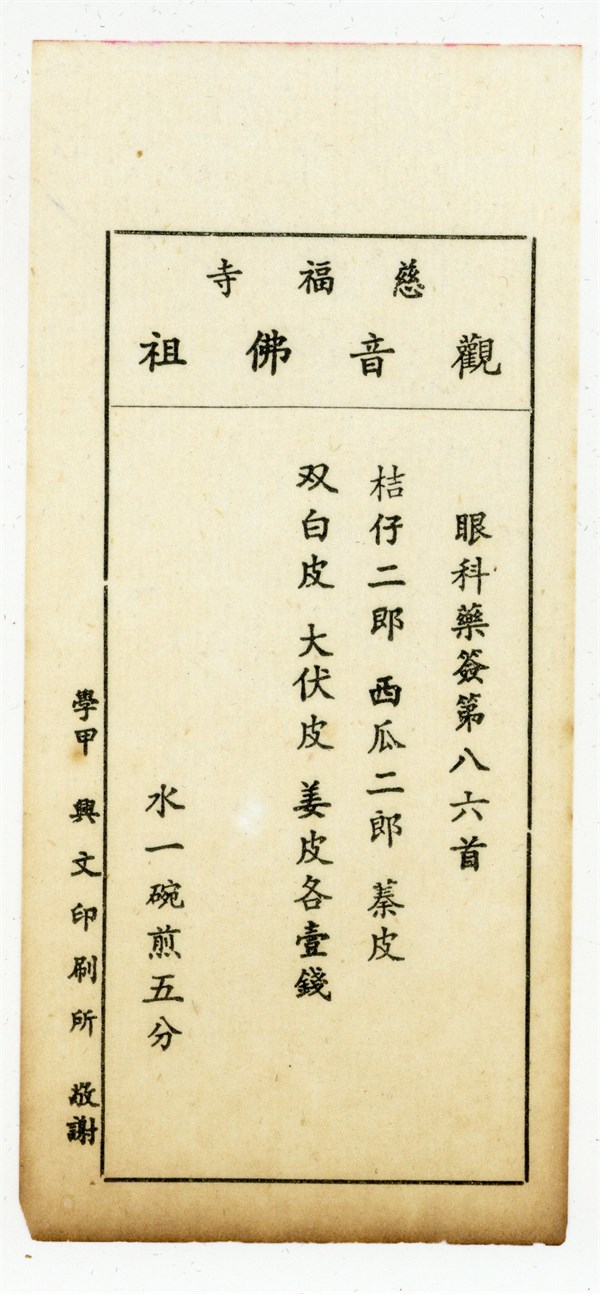 慈福寺
觀音佛祖
眼科藥簽第八六首
桔仔二郎 西瓜二郎 蓁皮
双白皮 大伏皮 姜皮各壹錢
水一碗煎五分
學甲 興文印刷所 敬謝